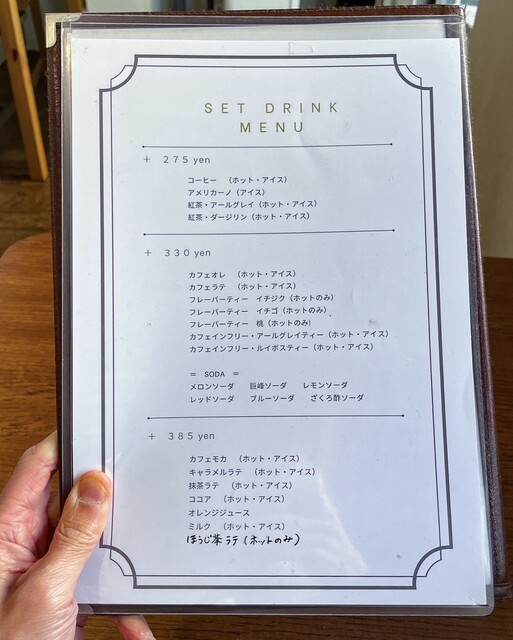 SET DRINK
MENU
＋ 275 yen
コーヒー （ホット・アイス）
アメリカーノ（アイス）
紅茶・アールグレイ（ホット・アイス）
紅茶・ダージリン（ホット・アイス）
＋ 330 yen
カフェオレ （ホット・アイス）
カフェラテ （ホット・アイス）
フレーバーティー イチジク（ホットのみ）
フレーバーティー イチゴ（ホットのみ）
フレーバーティー 桃（ホットのみ）
カフェインフリー・アールグレイティー（ホット・アイス）
カフェインフリー・ルイボスティー（ホット・アイス）
＝ SODA ＝
メロンソーダ 巨峰ソーダ レモンソーダ
レッドソーダ ブルーソーダ ざくろ酢ソーダ
＋ 385 yen
カフェモカ （ホット・アイス）
キャラメルラテ （ホット・アイス）
抹茶ラテ （ホット・アイス）
ココア （ホット・アイス）
オレンジジュース
ミルク （ホット・アイス）
ほうじ茶ラテ（ホットのみ）